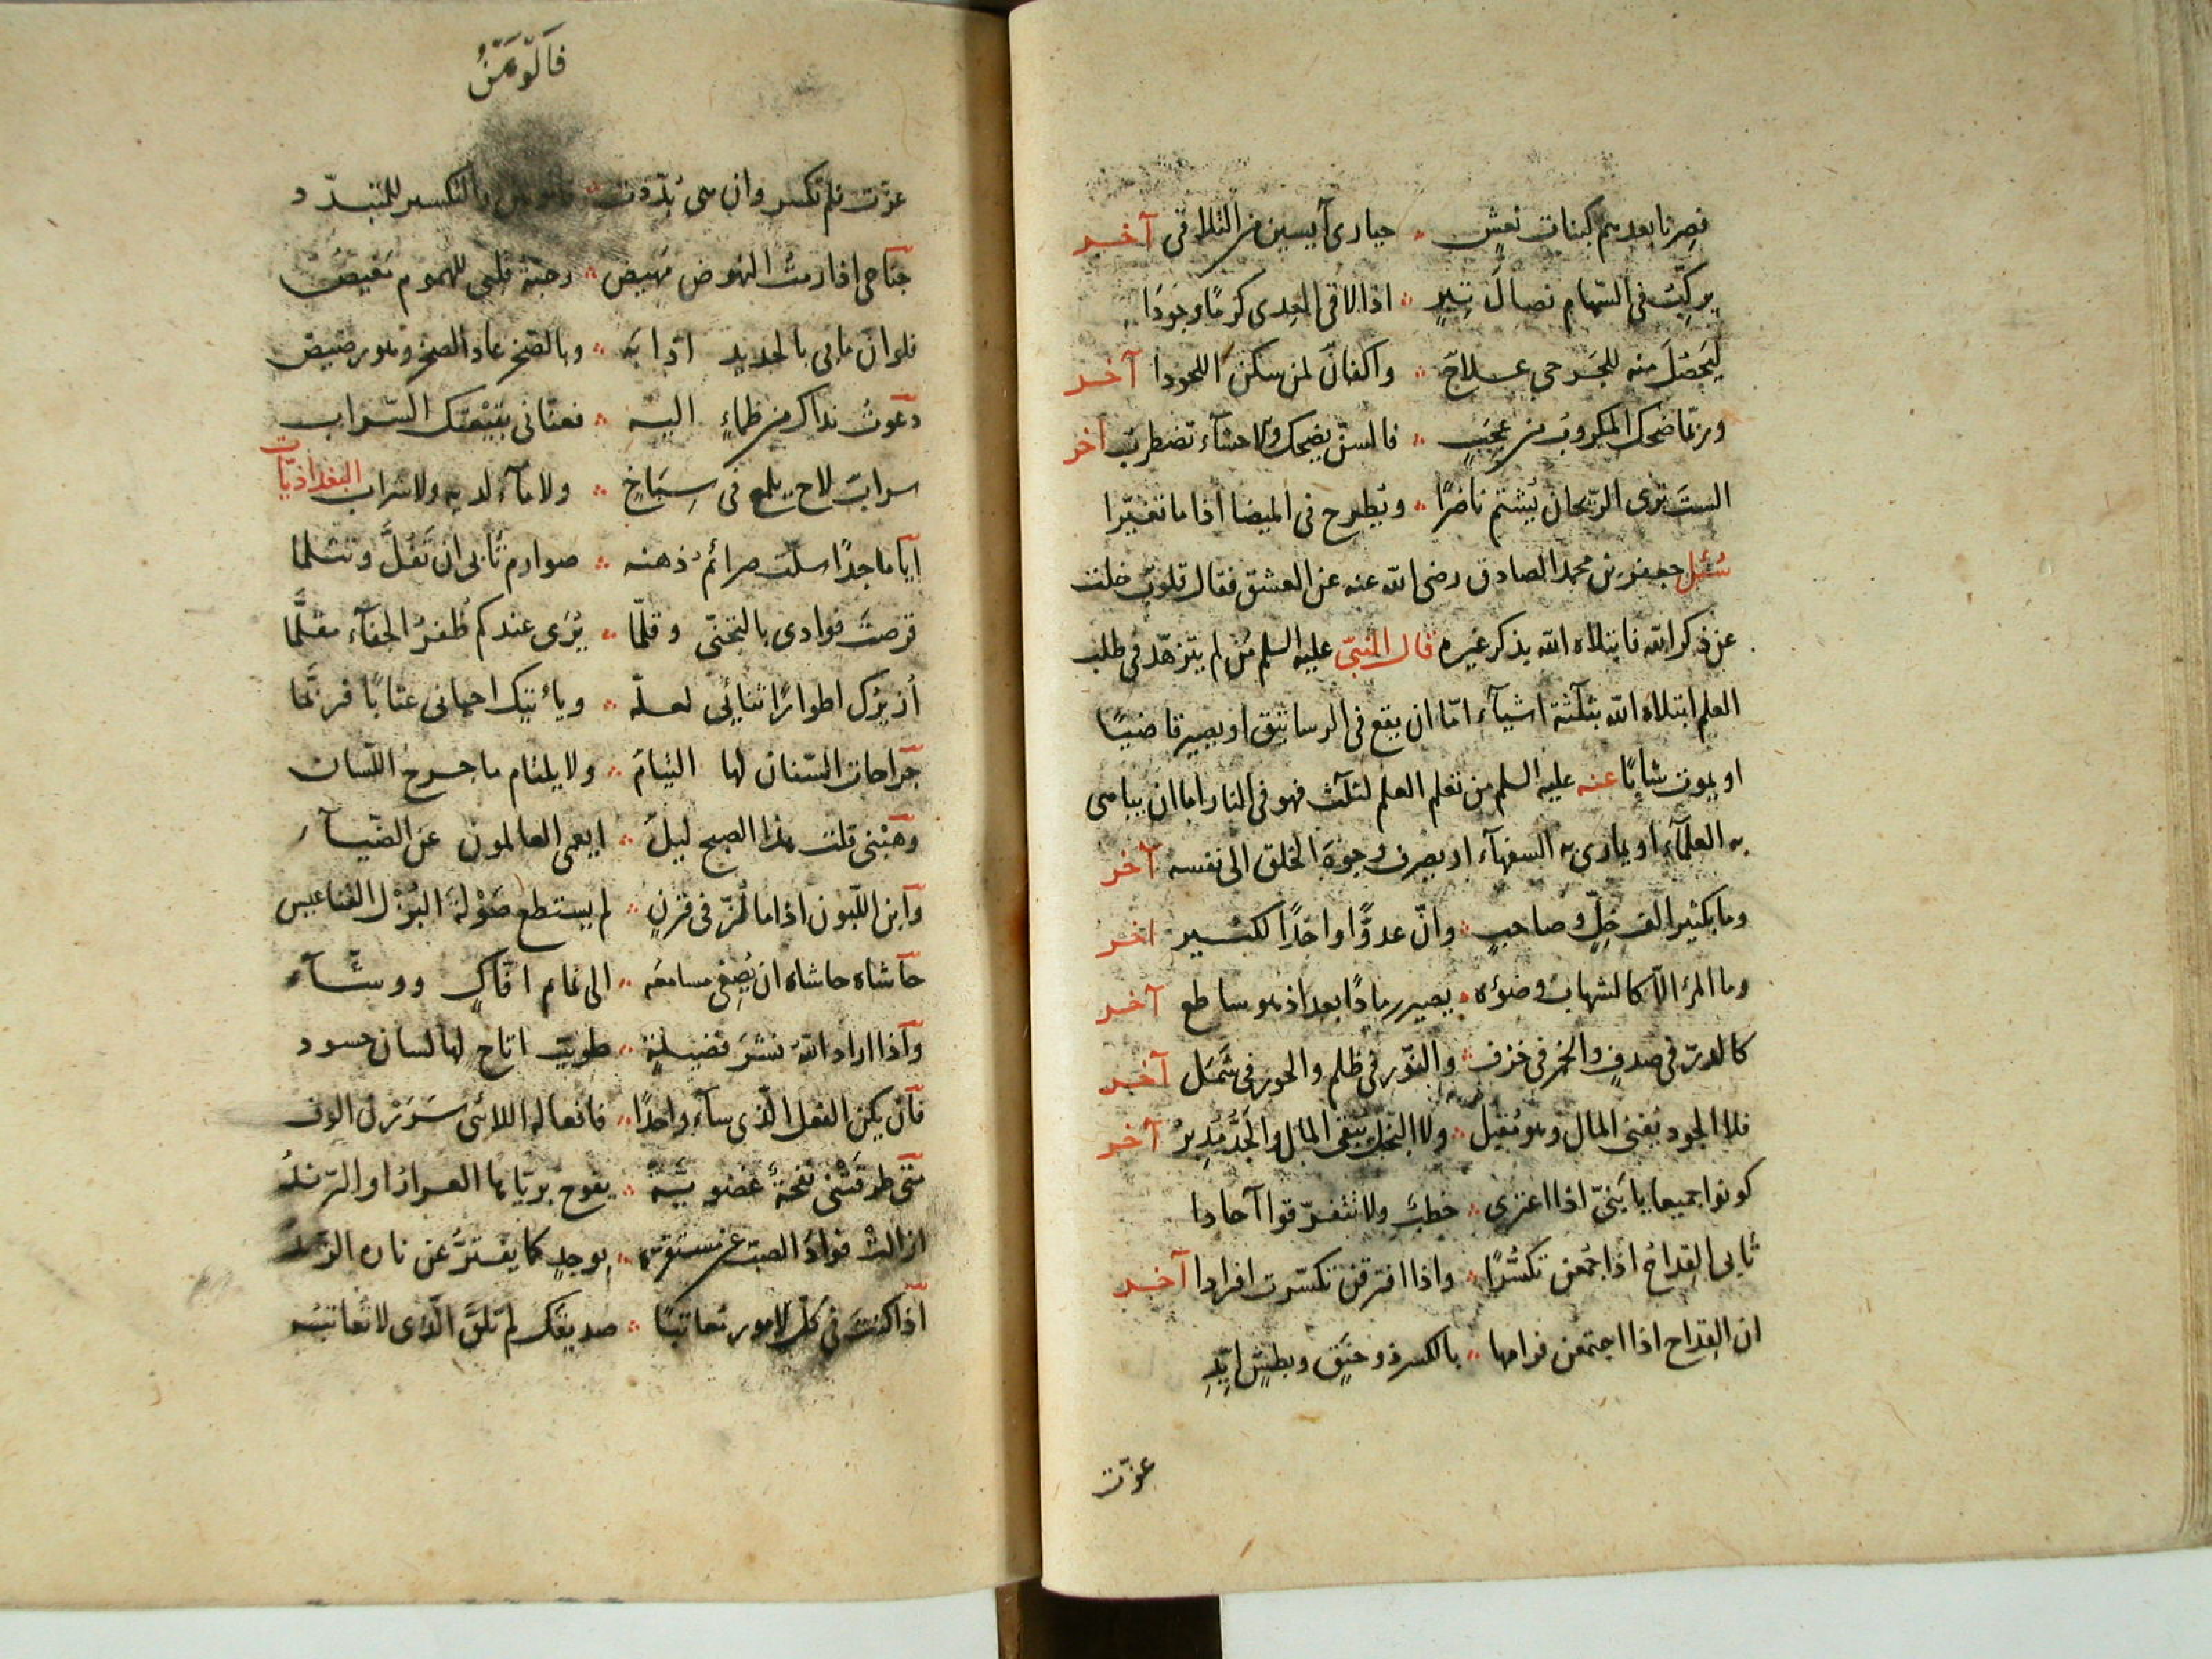 فصرنا بعدهم كبنات نعش ∴ حيارى آيسين من التلاقى آخر
يركّب فى السّهام نصال تبر ∴ اذا لاقى العدى كرمًا وجودَا
ليحصل منه للجرحى علاج ∴ واكفان لمن سكن اللحودا آخر
وربّما ضحك المكروب من عجب ∴ فالسن يضحك والاحشآء تضطرب آخر
الست ترى الريحان يُشتم ناضرًا ∴ ويُطرح فى الميضا اذا ما تغيّرا
سُئل جعفر بن محمد الصادق رضى الله عنه عن العشق فقال قلوب خلت
عن ذكر الله فابتلاه الله بذكر غيره قال النبىّ عليه السلم من لم يتزهّد فى طلب
العلم ابتلاه الله بثلثة اشيآء امّا ان يقع فى الرساتيق او يصير قاضيًا
او يموت شابًا عنه عليه السلم من تعلم العلم لثلث فهو فى النار اما ان يباهى
به العلمآء او يمارى به السفهآء او يصرف وجوه الخلق الى نفسه آخر
وما بكثير الف خِلّ وصاحبٍ ∴ وانّ عدوًّا واحدًا لكثير اخر
وما المرء الّا كالشهاب وضوئه ∴ يصير رمادًا بعد اذ هو ساطع آخر
كالدرّ فى صدفٍ والخمر فى خزف ∴ والنّور فى ظلم والحور فى شَمَل آخر
فلا الجود يُفنى المال وهو مُقبل ∴ ولا البخل يُبقى المال والجَدُّ مُدبِرُ آخر
كونوا جميعا يا بَنىّ اذا اعترى ∴ خطبٌ ولا تتفرّقوا آحادا
تأبى القِداحُ اذا جُمعن تكسُّرًا ∴ واذا افترقن تكسّرت افرادا آخر
ان القِداح اذا اجتمعن فرامها ∴ بالكسر ذو حنَقٍ وبطشٍ ايّدِ
عزّت
عزّت فلم تكسر وان هى بُدّدت ∴ والتكسير للمتبدّد
جناحى اذا رمتُ النهوض مَهيض ∴ قلبى للهموم
فلو ان ما بى بالحديد اذابه ∴ وبالصخر عاد الصخر وهو رضيض
دعوتُ نداك من ظماءٍ اليه ∴ فعنّانى بقيعتك السّراب
سرابٌ لاح يلمع فى سِبَاخٍ ∴ ولا مآء لديه ولا شراب البغداذيّات
ايا ماجدًا سلّت صرائمُ ذهنه ∴ صوارم تأبى ان تَفلَّ وتثلما
قرصتَ فوادى بالتجنّى وقلّما ∴ يُرَى عندكم ظُفرُ الجفآء مقلَّمًا
ازيرُك اطوارًا ثنائى لعلّه ∴ ويأتيك احيانى عتابًا فربّما
جراحات السّنان لها التيامٌ ∴ ولا يلتام ما جرح اللّسان
وهَبْنى قلت هذا الصبح ليلٌ ∴ ايعمى العالمون عن الضّيآء
وابن اللّبون اذا ما لُزّ فى قرنٍ ∴ لم يستطع صَوْلةَ البُزْل القناعيس
حاشاه حاشاه ان يُصغى مسامعَه ∴ الى نمام افّاكٍ ووشّآء
واذا اراد الله نشرَ فضيلةٍ ∴ طويت اتاح لها لسان حسود
فان يكن الفعل الّذى سآء واحدًا ∴ فافعاله اللائى سَرَرْن الوف
متى طرقَتْنى نفحةٌ عضديّةٌ ∴ يفوح بريّاها العرارُ او الرّندُ
ازالتْ فوادُ الصبّ عن مستقرّه ∴ بوجدٍ كما يفترُّ عن ناره الزّندُ
اذا كنتَ فى كلّ الامور معاتبًا ∴ صديقَك لم تلقَ الّذى لا تُعاتبُه